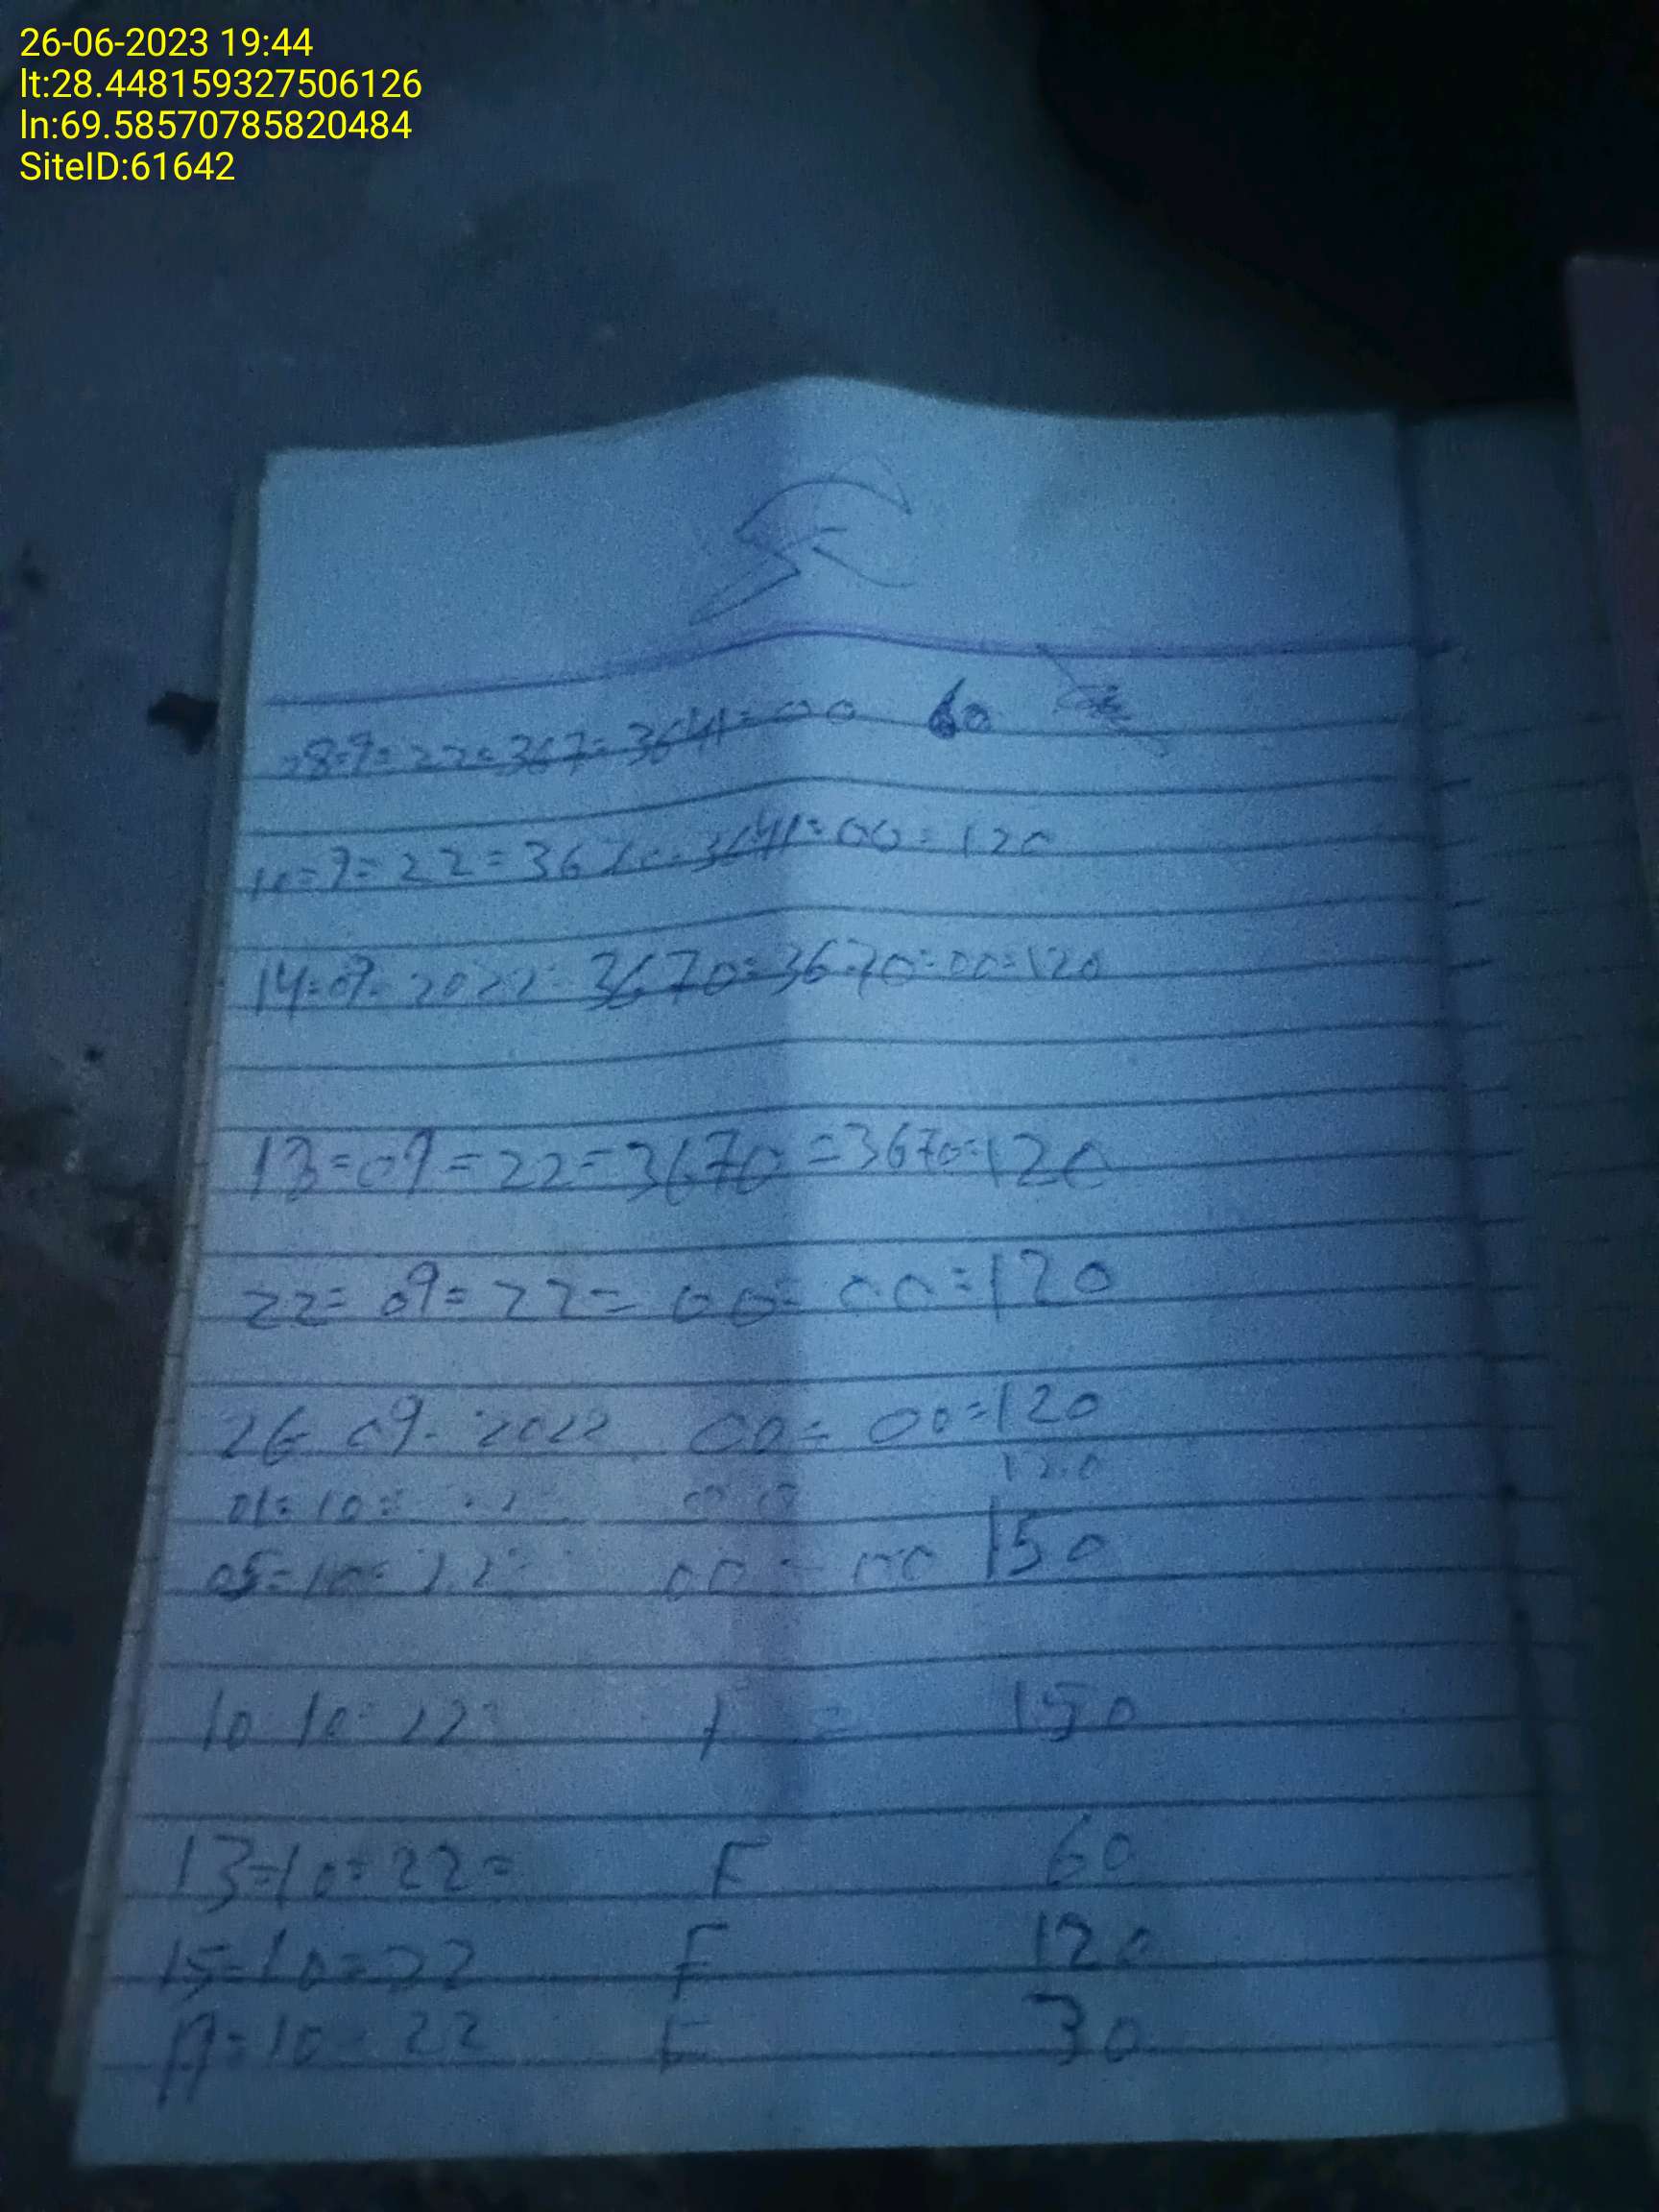 26-06-2023 19:44
lt:28.448159327506126
ln:69.58570785820484
SiteID:61642
08=9=22=367=3641=00 60
10=9=22=3670=3641=00=120
14=09=2022=3670=3670=00=120
13=09=22=3670=3670=120
22=09=22=00=00=120
26-09-2022 00=00=120
01=10= 00 120
05=10=22= 00=00 150
10 10=22= F = 150
13=10=22= F 60
15=10=22 F 120
=10=22 F 30